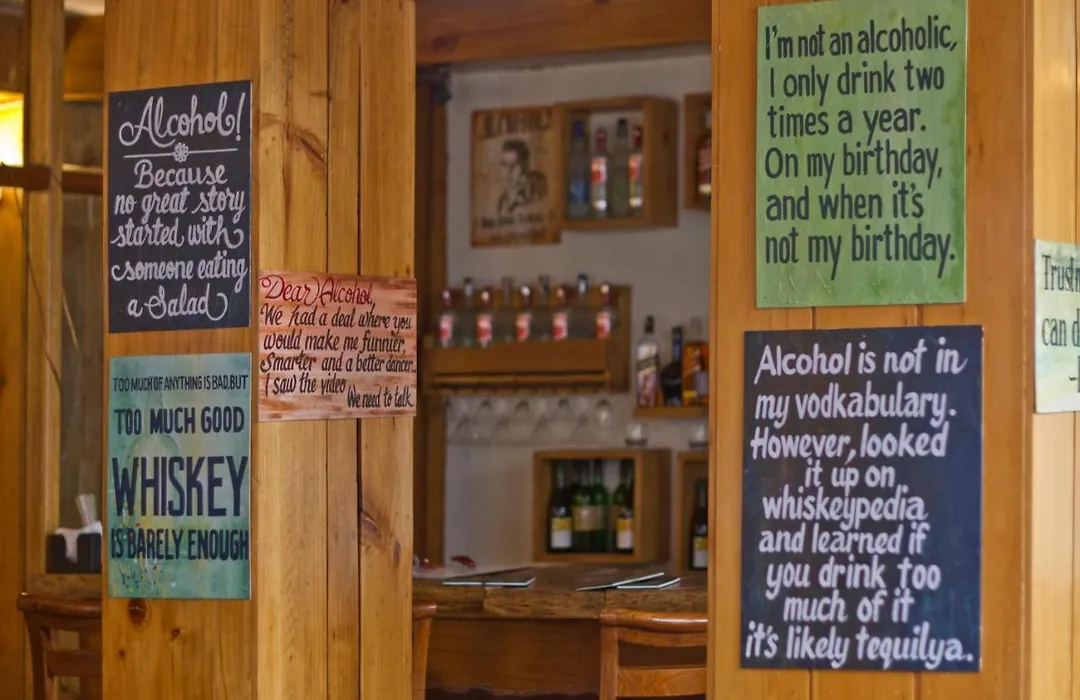 Alcohol!
Because
no great story
started with
someone eating
a Salad
TOO MUCH OF ANYTHING IS BAD, BUT
TOO MUCH GOOD
WHISKEY
IS BARELY ENOUGH
Dear Alcohol,
We had a deal where you
would make me funnier,
Smarter and a better dancer.
I saw the video
We need to talk.
I'm not an alcoholic,
I only drink two
times a year.
On my birthday,
and when it's
not my birthday.
Alcohol is not in
my vodkabulary.
However, looked
it up on
whiskeypedia
and learned if
you drink too
much of it
it's likely tequilya.
can d